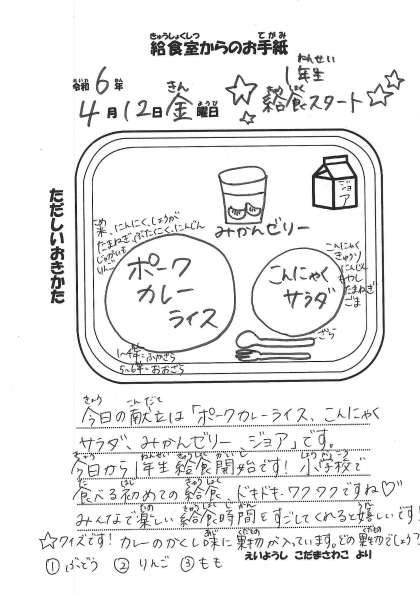 きゅうしょくしつ てがみ
給食室からのお手紙
れいわ ねん
令和6年
4月12日金曜日
きん ようび
ねんせい
1年生
☆給食スタート☆☆
ただしいおきかた
ジョア
みかんゼリー
こめ
米、にんにく、しょうが
たまねぎ、ぶたにく、にんじん
じゃがいも
りんご
ポーク
カレー
ライス
こんにゃく
きゅうり
にんじん
もやし
たまねぎ
ごま
こんにゃく
サラダ
ざら
1~4年=ふかざら
5~6年=おおざら
きょう こんだて
今日の献立は「ポークカレーライス、こんにゃく
サラダ、みかんゼリー ジョア」です。
きょう ねんせいきゅうしょくかいし しょうがっこう
今日から1年生給食開始です!小学校で
た はじ きゅうしょく
食べる初めての給食 ドキドキ・ワクワクですね♡
たの きゅうしょくじかん うれ
みんなで楽しい給食時間をすごしてくれると嬉しいです!
あじ くだもの くだもの
☆クイズです!カレーのかくし味に果物が入っています。どの果物でしょう?
えいようし こだまさわこ より
①ぶどう ②りんご ③もも